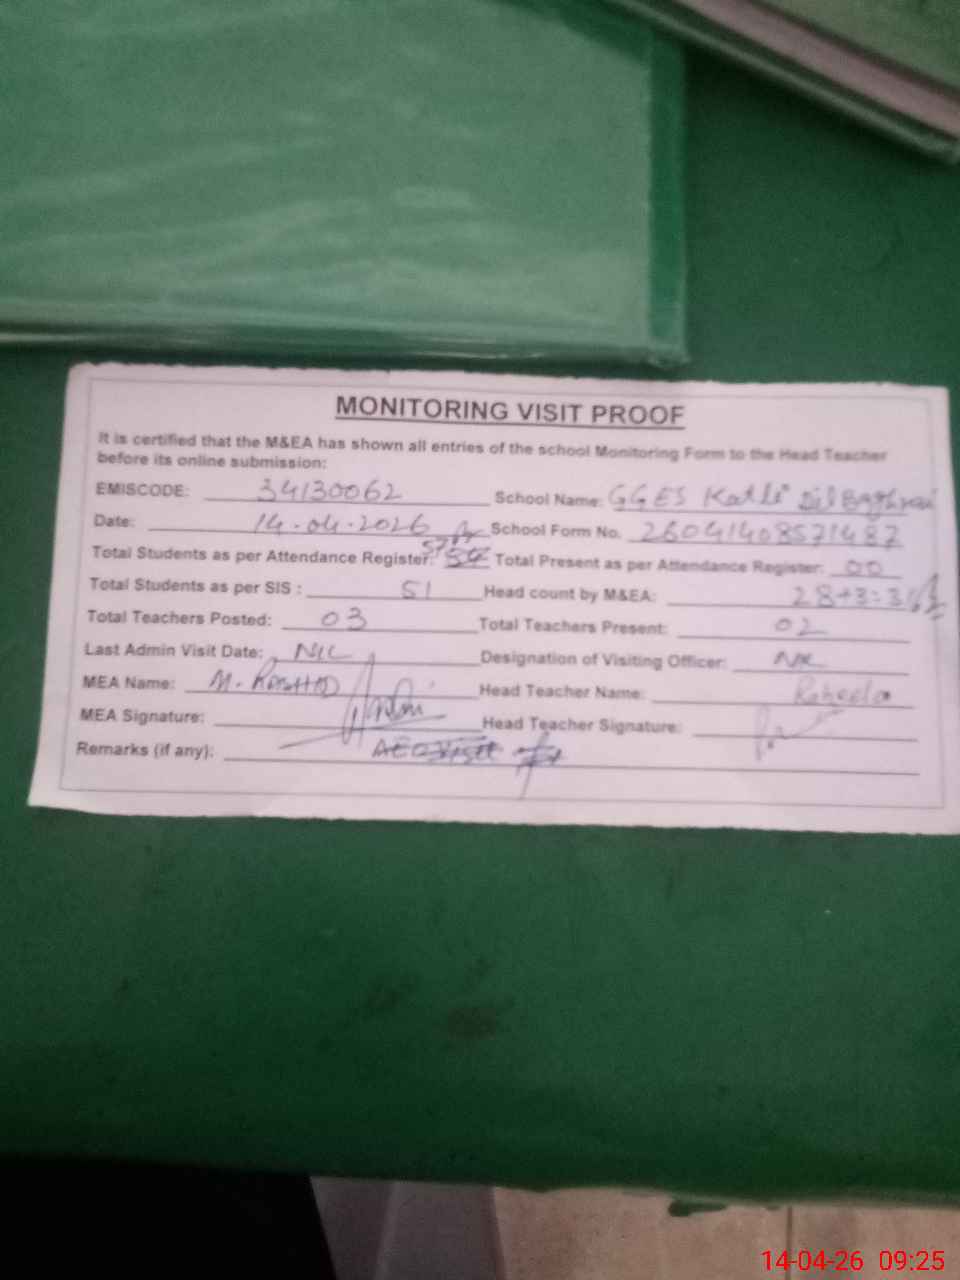 MONITORING VISIT PROOF
It is certified that the M&EA has shown all entries of the school Monitoring Form to the Head Teacher
before its online submission:
EMISCODE: 34130062 School Name: GGES Kotli Dil Baghrai
Date: 14-04-2026 School Form No. 26041408571487
Total Students as per Attendance Register: 57 Total Present as per Attendance Register: 00
Total Students as per SIS : 51 Head count by M&EA: 28+3=31
Total Teachers Posted: 03 Total Teachers Present: 02
Last Admin Visit Date: NIL Designation of Visiting Officer: NIL
MEA Name: M. RASHID Head Teacher Name: Raheela
MEA Signature: Head Teacher Signature:
Remarks (if any): AEO Visit
14-04-26 09:25